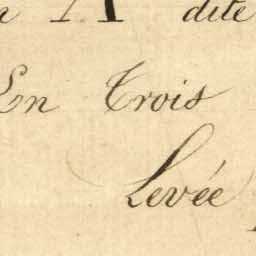 A dite
En Trois
Levée